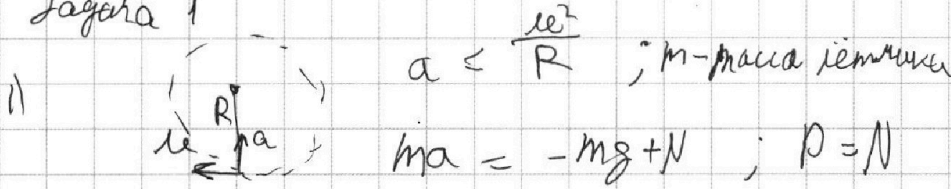 Задача 1
1) R u a
a ≤ u²/R ; m - масса лётчика
ma = -mg + N ; P = N